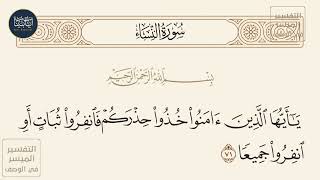 سُورَةُ النِّسَاءِ
بِسْمِ اللَّهِ الرَّحْمَٰنِ الرَّحِيمِ
يَـٰٓأَيُّهَا ٱلَّذِينَ ءَامَنُوا۟ خُذُوا۟ حِذْرَكُمْ فَٱنفِرُوا۟ ثُبَاتٍ أَوِ
ٱنفِرُوا۟ جَمِيعًا ٧١
التفسير
الميسر
في الوصف